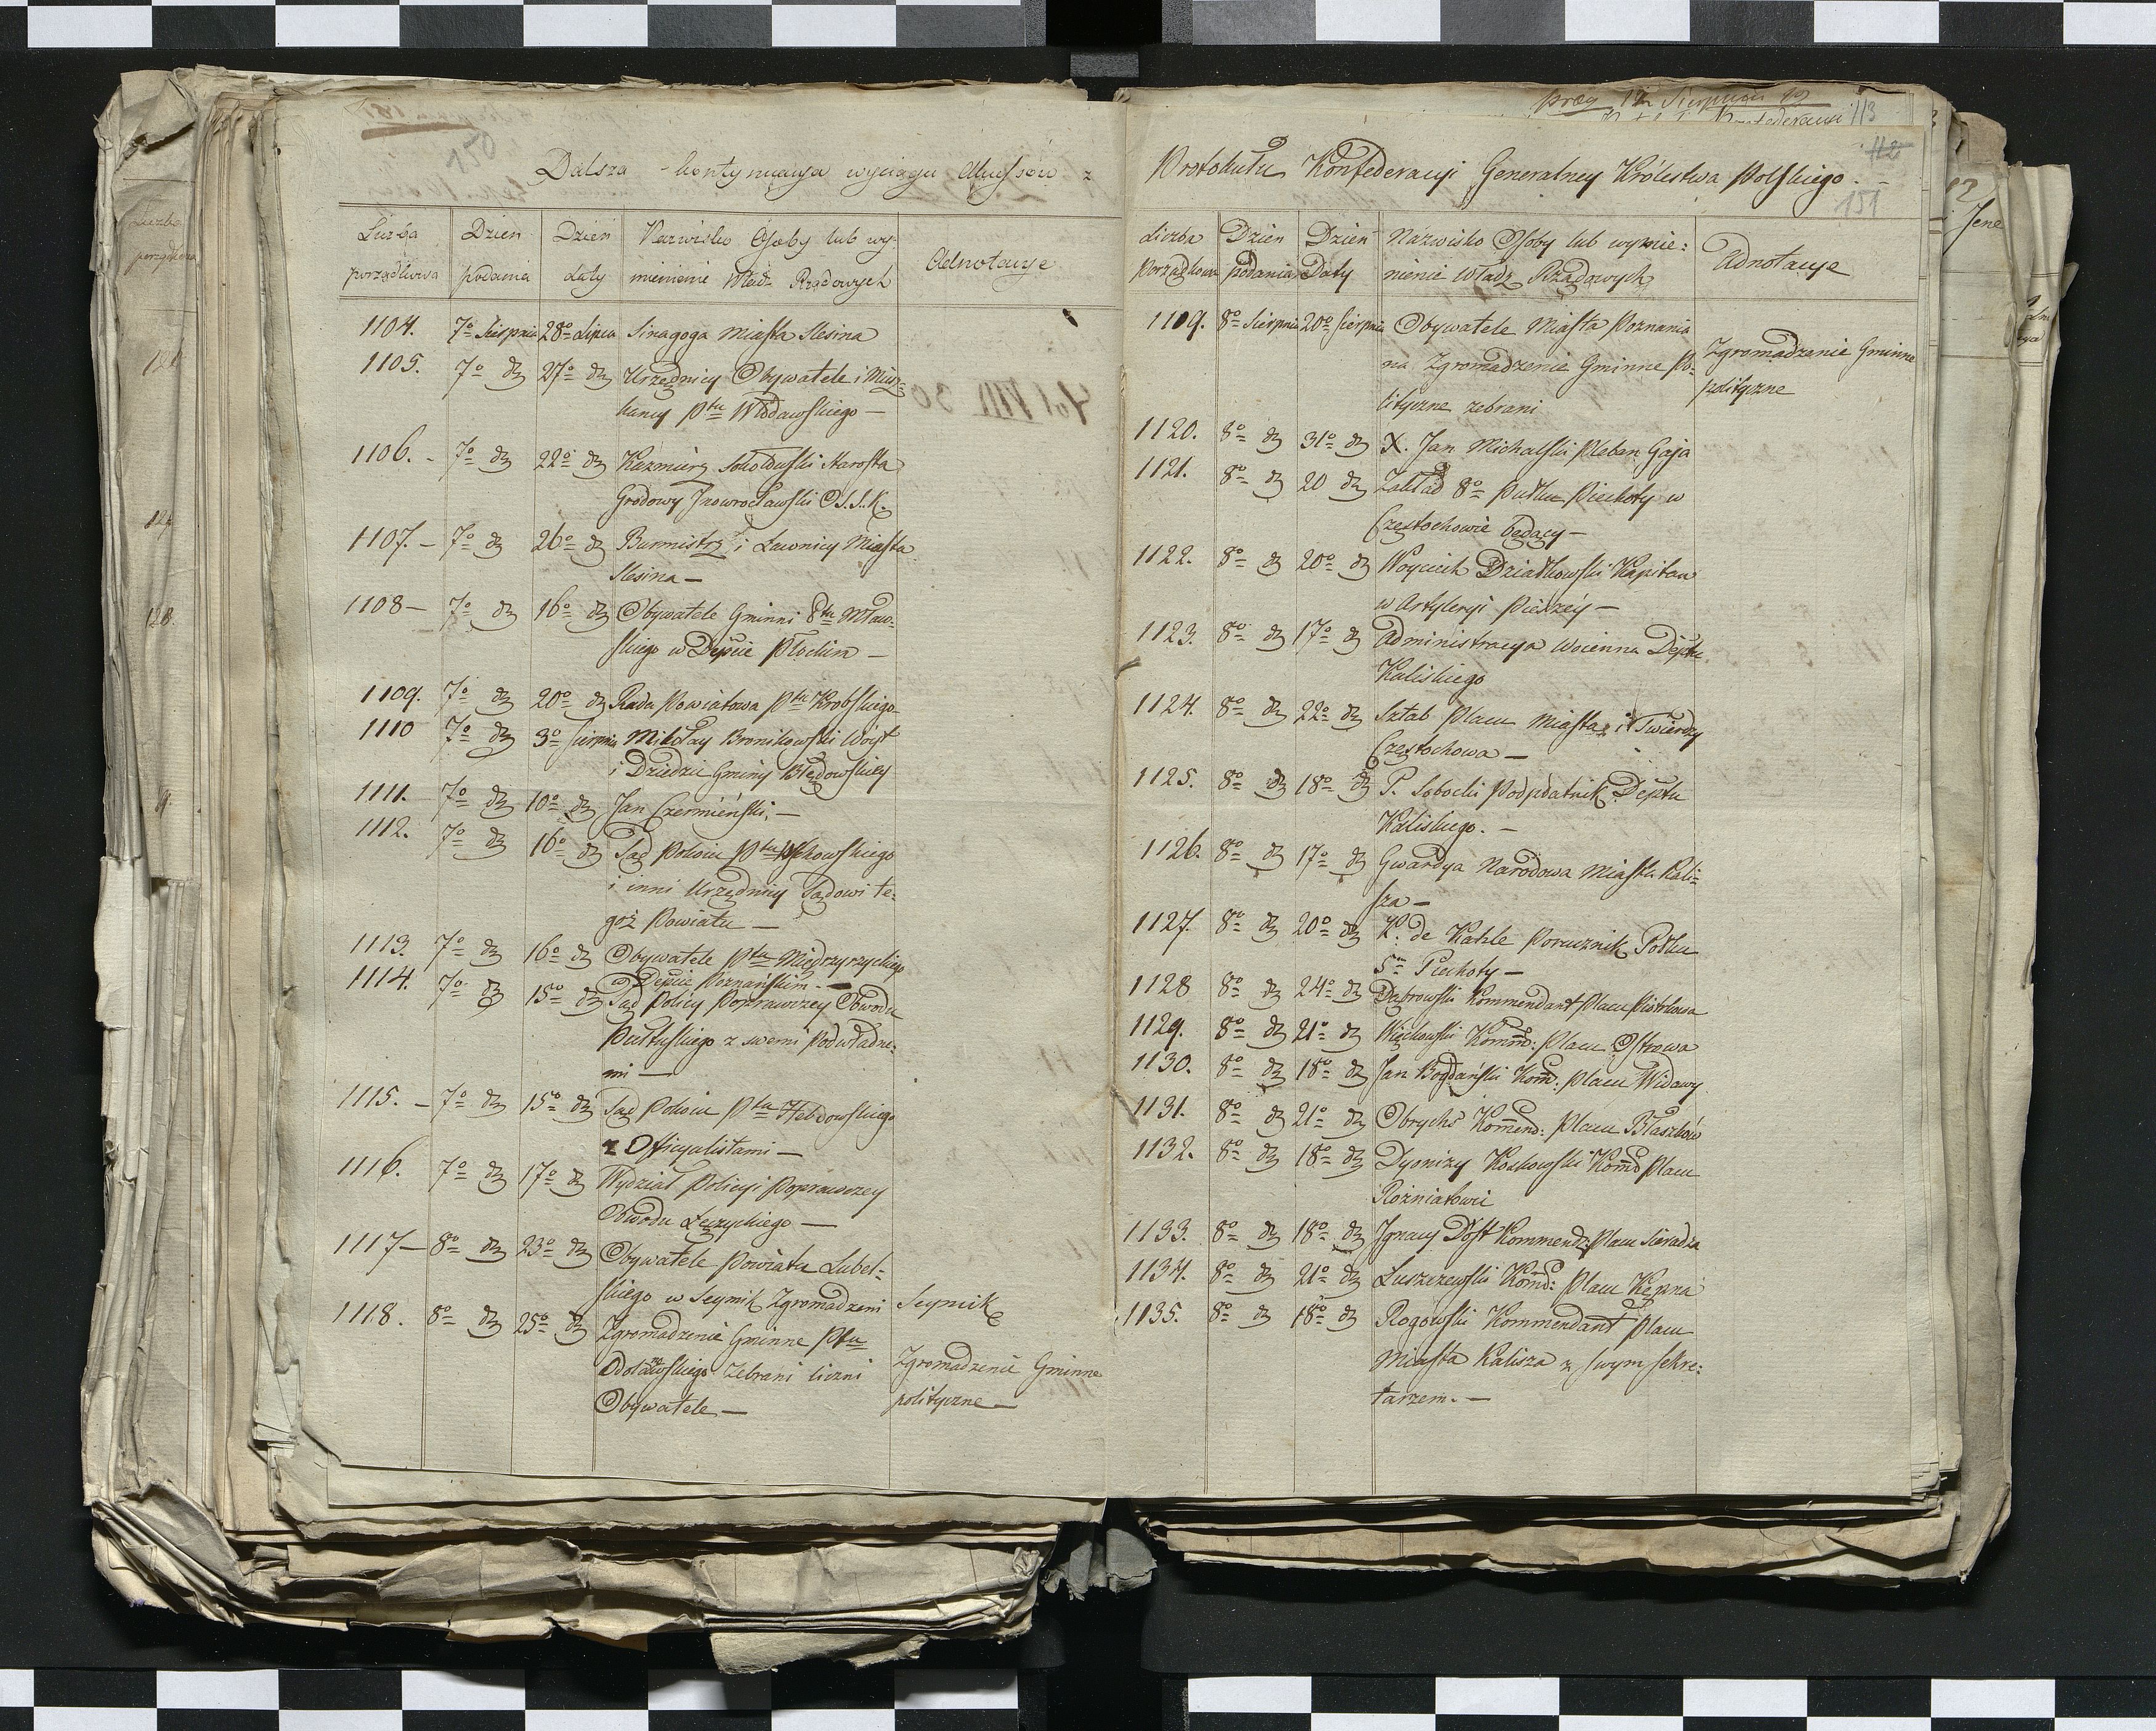 150
Dalsza kontynuacya wyciągu Akcessów z
Liczba porządkowa | Dzień podania | Dzień Daty | Nazwisko Osoby lub wy-
mienienie Władz Rządowych | Adnotacye
1104. 7o Sierpnia 28o Lipca Sinagoga Miasta Slesina
1105. 7o dto 27o dto Urzędnicy Obywatele i Miesz-
kancy Ptu Włodawskiego —
1106. - 7o dto 22o dto Kazmierz Starosta
Grodowy Jnowrocławski O.S.S.K.
1107. - 7o dto 26o dto Burmistrz i Ławnicy Miasta
Slesina —
1108 — 7o dto 16o dto Obywatele Gminni Ptu Mław-
skiego w Depcie Płockim —
1109. 7o dto 20o dto Rada Powiatowa Ptu Krobskiego
1110 7o dto 3o Sierpnia Mikołay Bronikowski Woyt
i Dziedzic Gminy Błędowskiey
1111. 7o dto 10o dto Jan Czermieński. —
1112. 7o dto 16o dto Sąd Pokoiu Ptu
i inni Urzędnicy Sądowi te-
goż Powiatu —
1113. 7o dto 16o dto Obywatele Ptu Międzyrzyckiego
w Depcie Poznańskim. —
1114. 7o dto 15o dto Sąd Policyi Poprawczey Obwodu
Pułtuskiego z swemi Podwładne-
mi —
1115. - 7o dto 15o dto Sąd Pokoiu Ptu Hebdowskiego
z Officyalistami —
1116. 7o dto 17o dto Wydział Policyi Poprawczey
Obwodu Łęczyckiego —
1117 — 8o dto 23o dto Obywatele Powiatu Lubel-
skiego w Seymik Zgromadzeni Seymik
1118. 8o dto 25o dto Zgromadzenie Gminne Ptu
zebrani liczni Zgromadzenie Gminne
Obywatele — polityczne —
113
112
151
Protokułu Konfederacyi Generalney Królestwa Polskiego. -
Liczba Porządkowa | Dzień podania | Dzień Daty | Nazwisko Osoby lub wymie-
nienie Władz Rządowych | Adnotacye
1119. 8o Sierpnia 20o Sierpnia Obywatele Miasta Poznania
na Zgromadzenie Gminne Po- Zgromadzenie Gminne
lityczne zebrani polityczne
1120. 8o dto 31o dto X. Jan Michalski Pleban Gaja
1121. 8o dto 20 dto Zakład 8o Pułku Piechoty w
Częstochowie będący —
1122. 8o dto 20o dto Woyciech Dziatkowski Kapitan
w Artyleryi Pieszey —
1123. 8o dto 17o dto Administracya Woienna Deptu
Kaliskiego
1124. 8o dto 22o dto Sztab Placu Miasta i Twierdzy
Częstochowa —
1125. 8o dto 18o dto P. Sobocki Deptu
Kaliskiego. —
1126. 8o dto 17o dto Gwardya Narodowa Miasta Kali-
sza —
1127. 8o dto 20o dto K. de Kahle Porucznik Pułku
5o Piechoty —
1128 8o dto 24o dto Dąbrowski Kommendant placu Piotrkowa
1129. 8o dto 21o dto Więckowski Komm: Placu Ostrowa
1130. 8o dto 18o dto Jan Bogdański Kom: placu Widawy
1131. 8o dto 21o dto Obrychś Komend: Placu Błaszków
1132. 8o dto 18o dto Dyonizy Koskowski Komd Placu
Rozniatowic
1133. 8o dto 18o dto Jgnacy Dost Kommend: Placu Sieradza
1134. 8o dto 21o dto Łuszczewski Komd: Placu Kępna
1135. 8o dto 18o dto Rogowski Kommendant Placu
Miasta Kalisza z swym Sekre-
tarzem. —